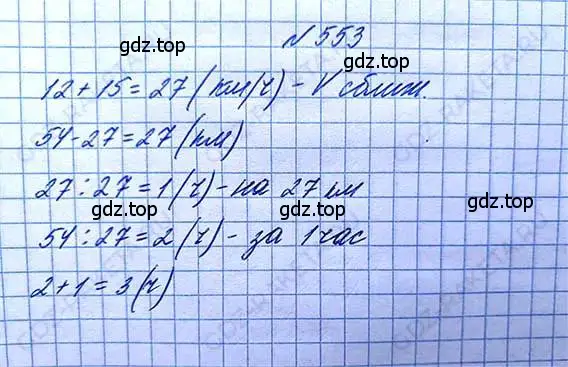 №553
gdz.top
12+15=27 (км/ч) - V сближ.
gdz.top
54-27=27 (км)
gdz.top gdz.top
27:27=1 (ч) - на 27 км
gdz.top gdz.top
54:27=2 (ч) - за 1 час
gdz.top
2+1=3 (ч)
gdz.top